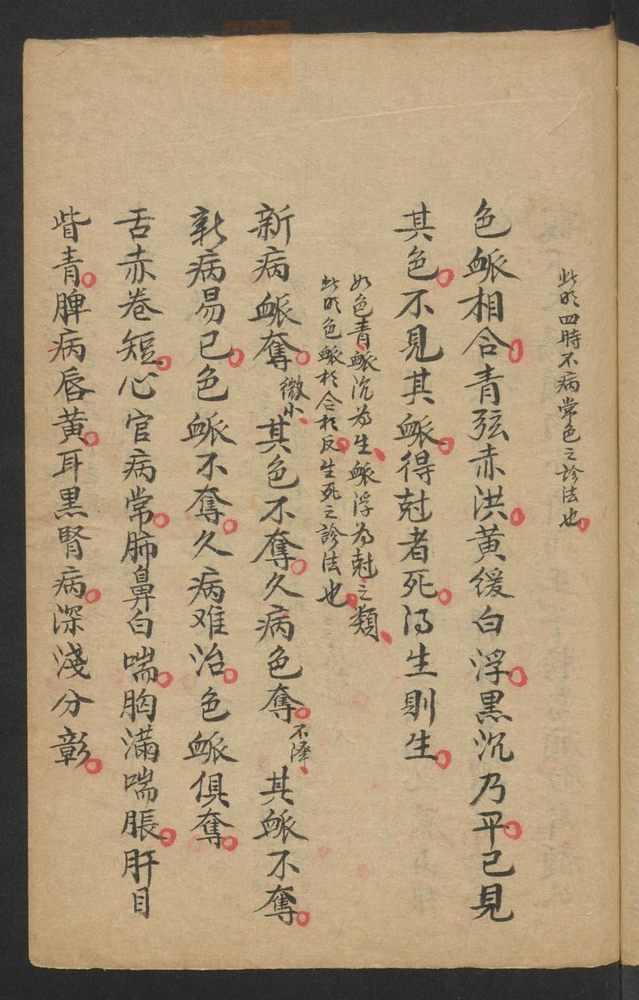 此明四時不病常色之診法也
色脈相合青弦赤洪黃緩白浮黑沉乃平已見
其色不見其脈得尅者死得生則生
如色青脈沉為生脈浮為尅之類
此明色脈相合相反生死之診法也
新病脈奪微小其色不奪久病色奪不澤其脈不奪
新病易已色脈不奪久病难治色脈俱奪
舌赤卷短心官病常肺鼻白喘胸滿喘脹肝目
眥青脾病唇黃耳黑腎病深淺分彰